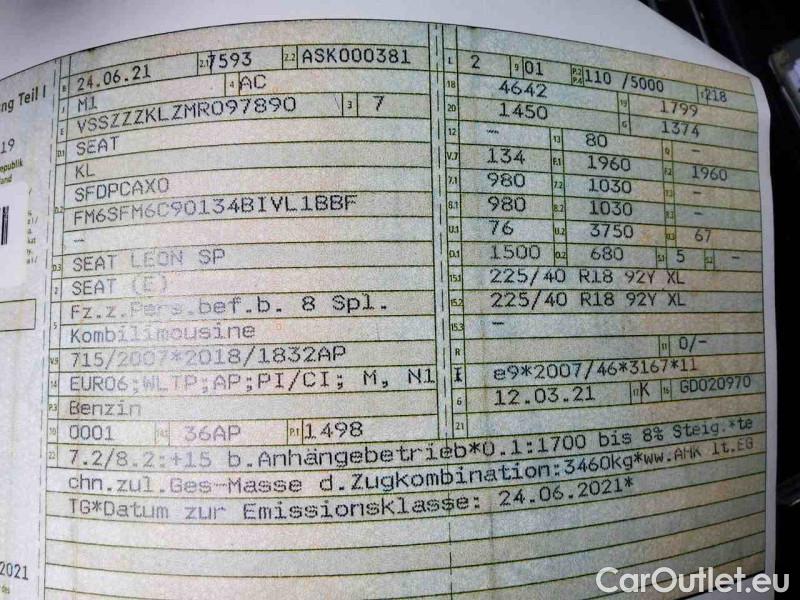 ng Teil I
19
epublik
land
2021
B 24.06.21 2.1 7593 2.2 ASK000381
J M1 4 AC
E VSSZZZKLZMR097890 3 7
D.1 SEAT
KL
D.2 SFDPCAX0
FM6SFM6C90134BIVL1BBF
–
D.3 SEAT LEON SP
2 SEAT (E)
5 Fz.z.Pers.bef.b. 8 Spl.
Kombilimousine
V.9 715/2007*2018/1832AP
14 EURO6;WLTP;AP;PI/CI; M, N1
P.3 Benzin
10 0001 14.1 36AP P.1 1498
L 2 9 01 P.2 P.4 110 /5000 T 218
18 4642 19 1799
20 1450 G 1374
12 – 13 80 Q –
V.7 134 F.1 1960 F.2 1960
7.1 980 7.2 1030 –
8.1 980 8.2 1030 –
U.1 76 U.2 3750 U.3 67
O.1 1500 O.2 680 S.1 5 S.2 –
15.1 225/40 R18 92Y XL
15.2 225/40 R18 92Y XL
15.3 –
R 11 0/–
K e9*2007/46*3167*11
6 12.03.21 17 K 16 GD020970
21
22 7.2/8.2:+15 b.Anhängebetrieb*O.1:1700 bis 8% Steig.*te
chn.zul.Ges-Masse d.Zugkombination:3460kg*ww.AHK lt.EG
TG*Datum zur Emissionsklasse: 24.06.2021*
CarOutlet.eu